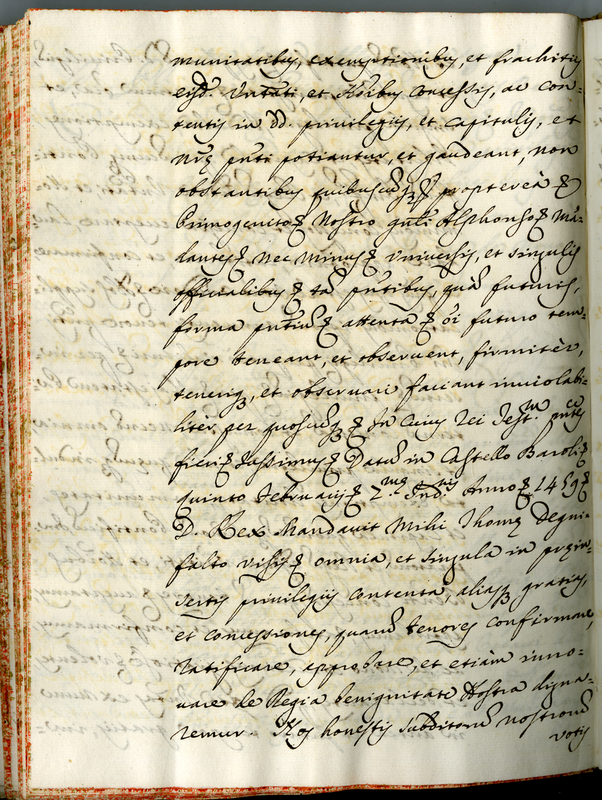 munitatibus, exemptionibus, et franchitijs
eisd. Vntati, et Hoibus concessis, ac con-
tentis in dd. privilegijs, et capitulis, et
nrę pnti potiantur, et gaudeant, non
obstantibus quibuscuq; propterea
Primogenito Nostro Alphonso Man-
dantes, nec minus Vniversis, et singulis
officialibus tã pñtibus, quã futuris,
forma pñtiu attenta oi futuro tem-
pore teneant, et observent, firmitèr,
teneriq; et observari faciant inviolabi-
litèr, per quoscuq; In Cuius rei testm. pntes
fieri Iussimus Datu in Castello Baroli
quinto februarij 7.me Indnis Anno 1459
D. Rex Mandavit Mihi Thomę Degni-
falto Visis omnia, et singula in pręin-
sertis privilegijs contenta, aliasq; gratias,
et concessiones, quaru tenores confirmare,
ratificare, approbare, et etiàm inno-
vare de Regia benignitate Nostra digna-
remur. Nos honestis subditoru nostroru
votis